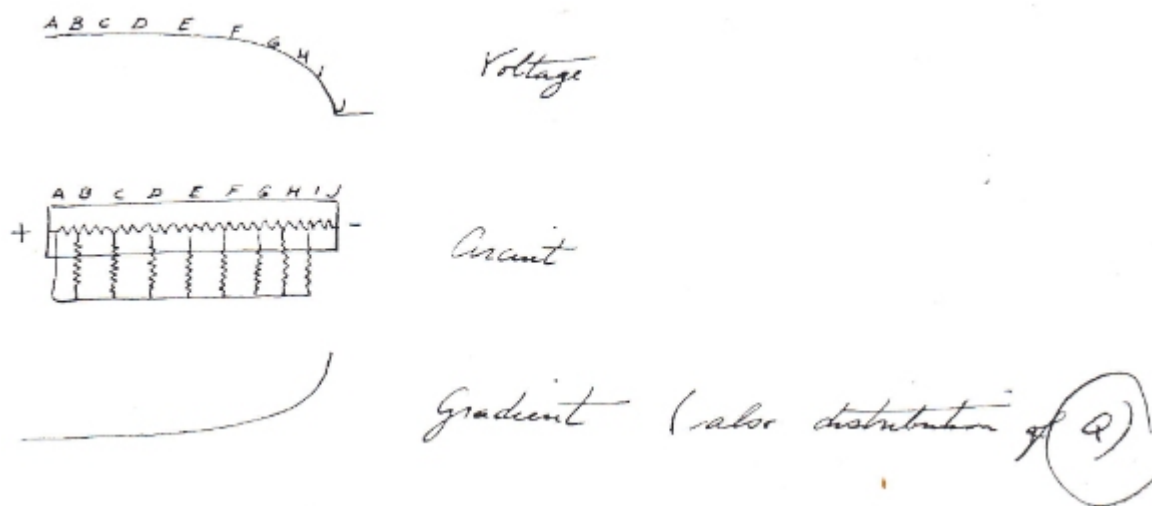 A B C D E F G H I J
Voltage
A B C D E F G H I J
+ -
Circuit
Gradient (also distribution of Q)